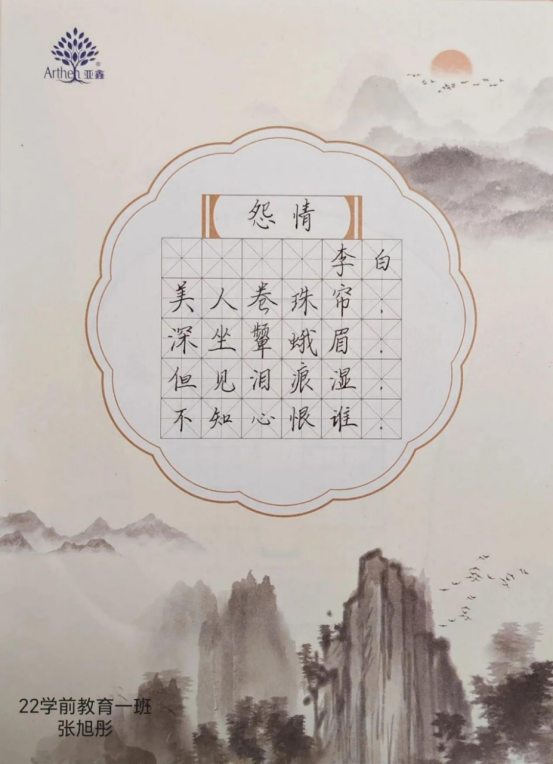 Arthen 亚鑫
怨情
李白
美人卷珠帘，
深坐颦蛾眉。
但见泪痕湿，
不知心恨谁。
22学前教育一班
张旭彤